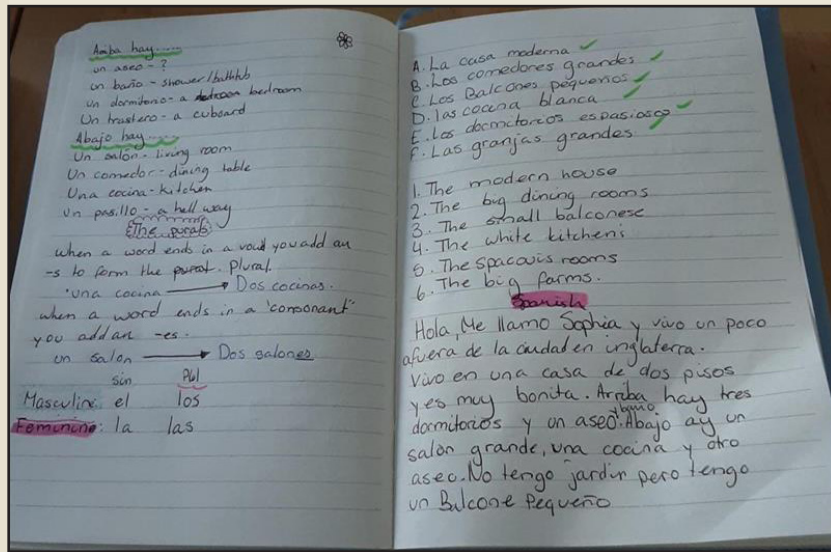 Arriba hay......
un aseo - ?
un baño - shower/bathtub
un dormitorio - a bedroom
Un trastero - a cuboard
Abajo hay......
Un salón - living room
Un comedor - dining table
Una cocina - kitchen
Un pasillo - a hell way
The purals
when a word ends in a you add an
-s to form the Plural.
una cocina → Dos cocinas.
when a word ends in a 'consonant'
you add an -es.
un salon → Dos salones
sin Pul
Masculine: el los
Feminine: la las
A. La casa moderna ✓
B. Los comedores grandes ✓
C. Los Balcones pequeños ✓
D. las cocina blanca ✓
E. Los dormitorios espasiosos ✓
F. Las granjas grandes ✓
1. The modern house
2. The big dining rooms
3. The small balconese
4. The white kitchens
5. The spacouis rooms
6. The big farms.
Spanish
Hola, Me llamo Sophia y vivo un poco
afuera de la ciudad en inglaterra.
Vivo en una casa de dos pisos
y es muy bonita. Arriba hay tres
dormitorios y un aseo y baño. Abajo ay un
salón grande, una cocina y otro
aseo. No tengo jardin pero tengo
un Balcone Pequeño